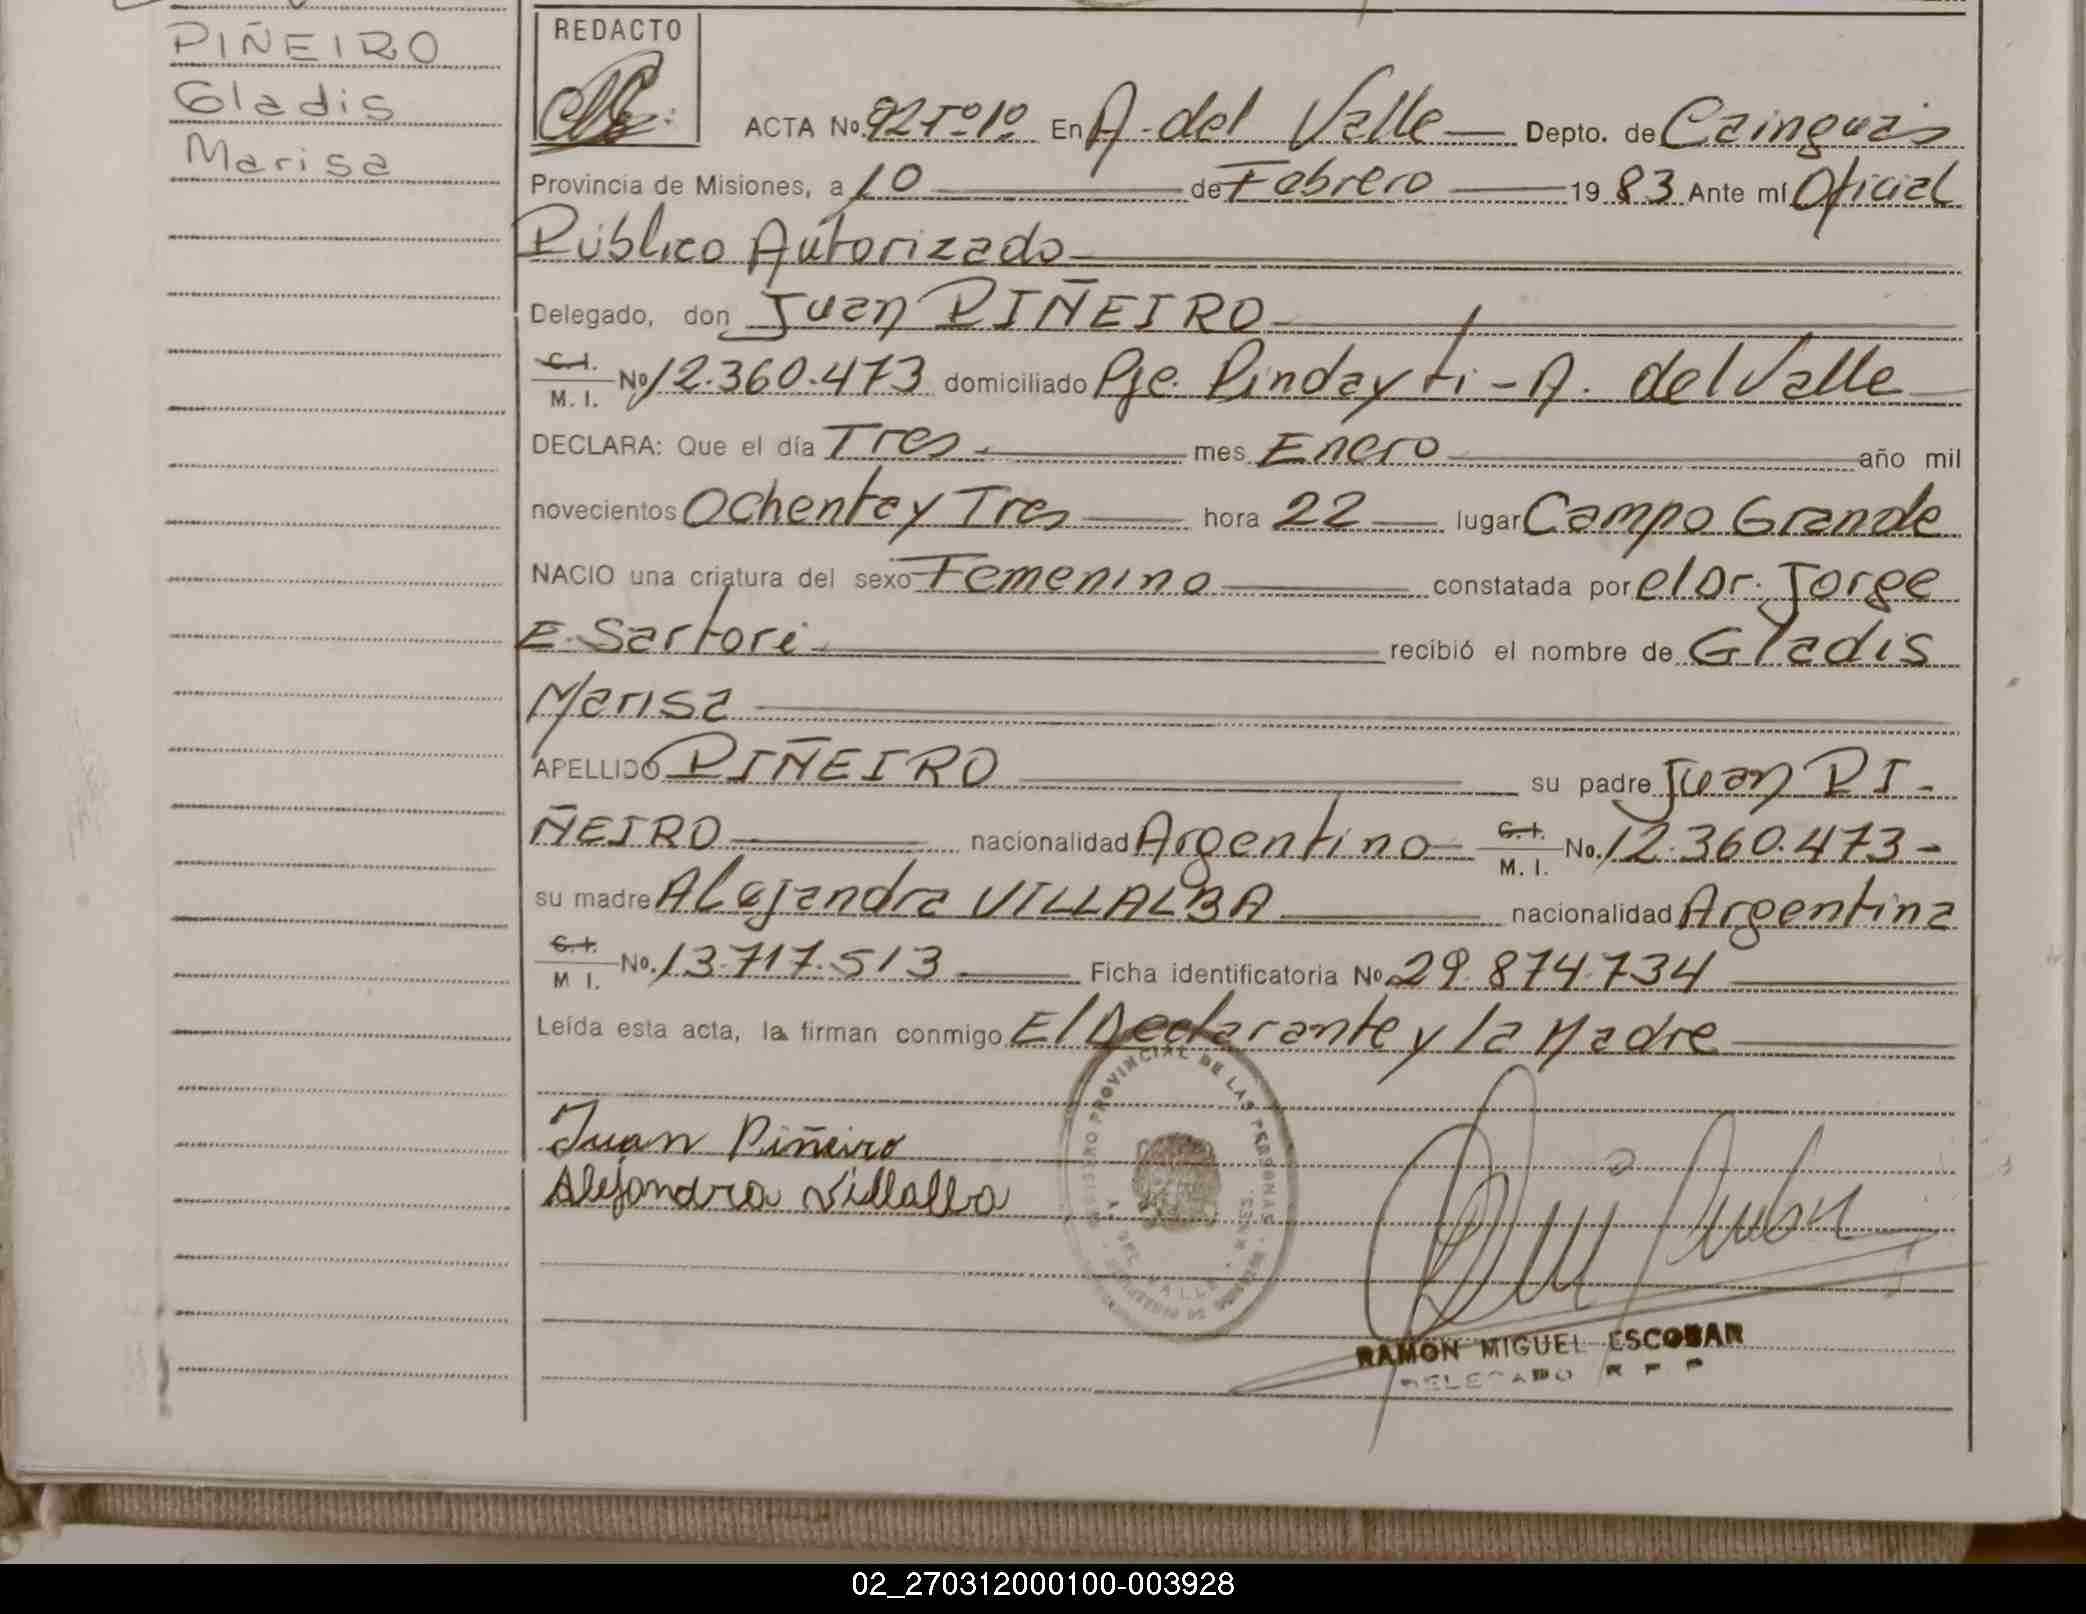 PIÑEIRO
Gladis
Marisa
REDACTO
ACTA No. 92 Tº 1º En A. del Valle Depto. de Cainguás
Provincia de Misiones, a 10 de Febrero 1983 Ante mí Oficial
Público Autorizado
Delegado, don Juan PIÑEIRO
C.I.
M. I. Nº 12.360.473 domiciliado Pje. Pindayti - A. del Valle
DECLARA: Que el día Tres mes Enero año mil
novecientos Ochenta y Tres hora 22 lugar Campo Grande
NACIO una criatura del sexo Femenino constatada por el Dr. Jorge
E. Sartori recibió el nombre de Gladis
Marisa
APELLIDO PIÑEIRO su padre Juan PI-
ÑEIRO nacionalidad Argentino C.I.
M. I. No. 12.360.473-
su madre Alejandra VILLALBA nacionalidad Argentina
C.I.
M I. No. 13.717.513 Ficha identificatoria No. 29.874.734
Leída esta acta, la firman conmigo El Declarante y la Madre
Juan Piñeiro
Alejandra Villalba
REGISTRO PROVINCIAL DE LAS PERSONAS
DEL VALLE
RAMON MIGUEL ESCOBAR
DELEGADO R P P
02_270312000100-003928